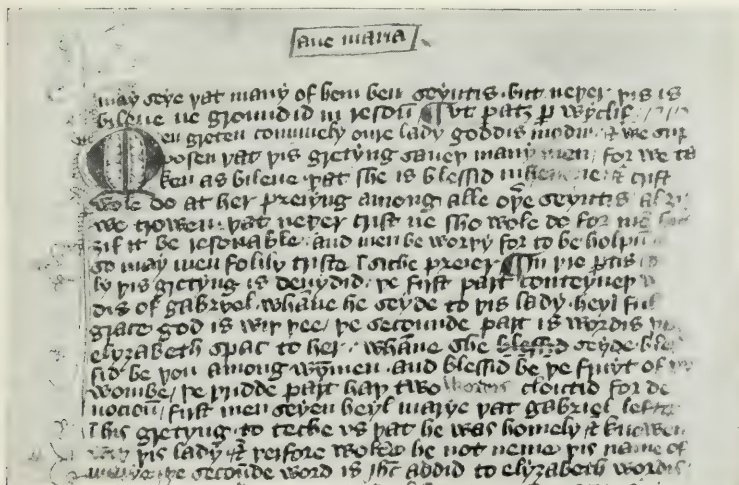 aue maria
may seye þat many of hem ben seyntis. but neþer þis is
bileue ne groundid in resoū ¶ Vt patȝ p wyclif
Men greten comunely oure lady goddis modir. & we sup
posen þat þis gretyng saueþ many men/ for we ta
ken as bileue. þat she is blessid in heuene & crist
wole do at her preiyng among alle oþe seyntis
we trowen. þat neþer crist ne she wole do for mē
ȝif it be resonable. and men be worþy for to be holpū
so may men folily triste ī siche preier ¶ In þre ptis
ly þis gretyng is deuydid. þe first part conteyneþ
dis of gabryel. whāne he seyde to þis lady. heyl ful
grace god is wiþ þee/ þe secounde part is wordis
elyzabeth spac to her. whāne she blessid seyde. bles
sid be þou among wymen. and blessid be þe fruyt of
wombe/ þe þridde part haþ two wordis cloutid for de
uocioū/ first men seyen heyl marye þat gabriel lefte
ī his gretyng. to teche vs þat he was homely & knowen
wiþ þis lady & þerfore wolde he not neme þis name of
marye þe secoūde word is ihc addid to elyzabeth wordis.